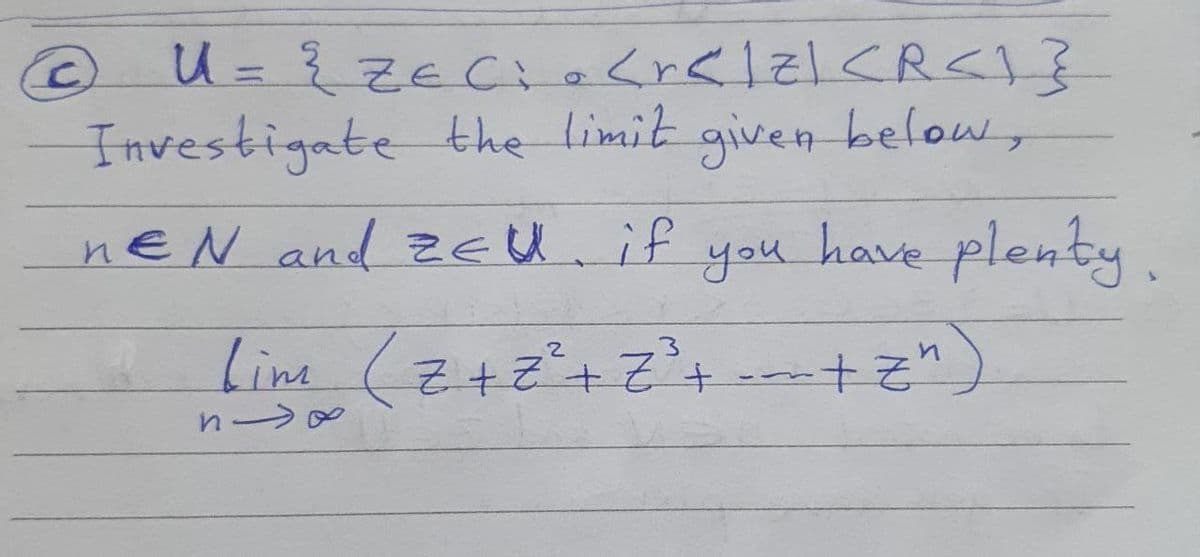 (c) U = { z ∈ C : 0 < r < |z| < R < 1 }
Investigate the limit given below,
n ∈ N and z ∈ U, if you have plenty.
lim (z + z² + z³ + --- + zⁿ)
n → ∞